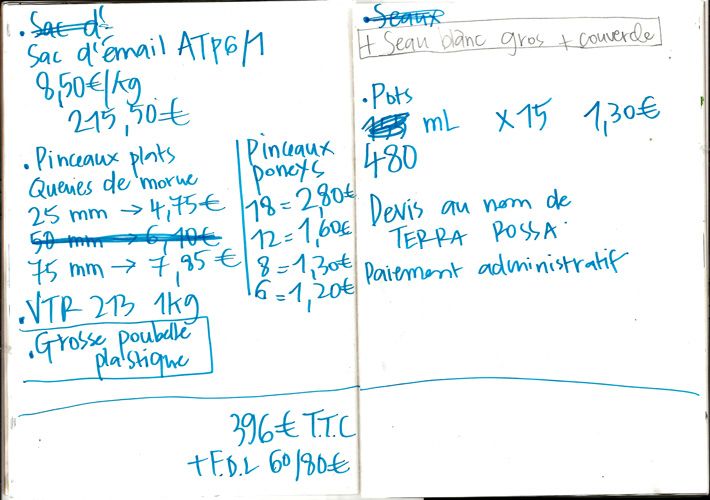 . Sac d'
Sac d'émail ATP6/1
8,50€/kg
215,50€
. Pinceaux plats
Queues de morue
25 mm → 4,75€
50 mm → 6,10€
75 mm → 7,85€
. VTR 213 1kg
. Grosse poubelle
plastique
Pinceaux
poneys
18 = 2,80€
12 = 1,60€
8 = 1,30€
6 = 1,20€
396€ T.T.C
+ F.D.L 60/80€
. Seaux
+ Seau blanc gros + couvercle
. Pots
mL x15 1,30€
480
Devis au nom de
TERRA ROSSA.
Paiement administratif